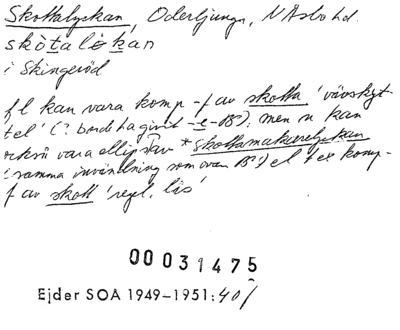 Skottalyckan, Oderljunga, N Åsbo hd.
skòtalékan
i Skingeröd
fl kan vara komp-f av skotta 'vävskyt-
tel' (? borde ha givit -e- B²); men n kan
också vara ellips av *Skottamakarelyckan
(samma invändning som ovan B²) el t ex komp-
f av skott 'regel, lås'
00031475
Ejder SOA 1949-1951: 401